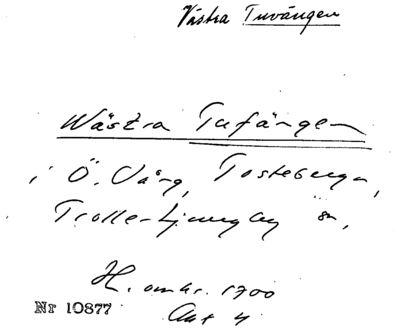 Västra Tuvängen
Wästra Tufängen
i Ö. Vång, Tosteberga,
Trolle-Ljungby sn,
H. omkr. 1700
Akt 4
Nr 10877